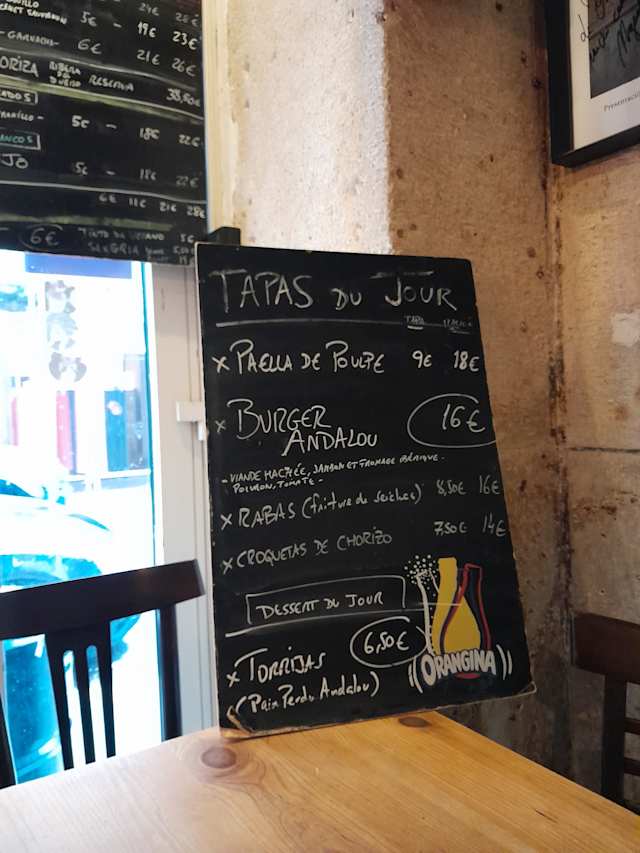 5€ - 19€ 23€
-GARNACHA- 6€ 21€ 26€
RIBERA DEL DUERO RESERVA 38,50€
5€ - 18€ 22€
5€ - 18€ 22€
6€ 11€ 21€ 28€
6€ TINTO DE VERANO 5€
SANGRIA
TAPAS DU JOUR
TAPA
x PAELLA DE POULPE 9€ 18€
x BURGER
ANDALOU 16€
- VIANDE HACHÉE, JAMBON ET FROMAGE IBÉRIQUE -
POIVRON, TOMATE -
x RABAS (friture de seiches) 8,50€ 16€
x CROQUETAS DE CHORIZO 7,50€ 14€
DESSERT DU JOUR
x TORRIJAS 6,50€
(Pain Perdu Andalou)
ORANGINA